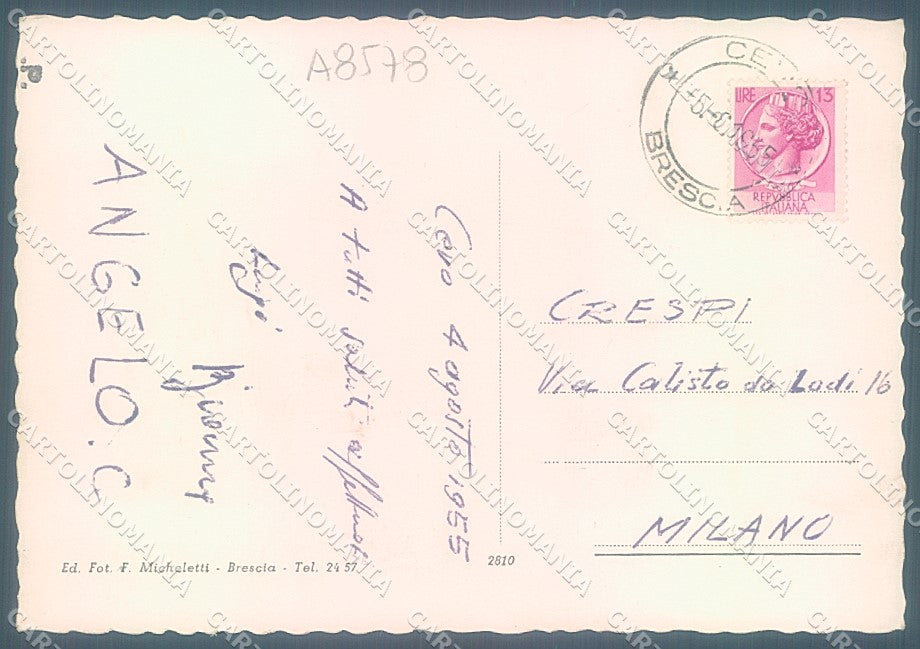 A8578
CEVO
BRESCIA
LIRE 13
REPVBBLICA
ITALIANA
Cevo 4 agosto 1955
A tutti saluti affettuosi
Luigi
ANGELO. C
CRESPI
Via Calisto da Lodi 16
MILANO
Ed. Fot. F. Micheletti - Brescia - Tel. 24 57
2810
CARTOLINOMANIA